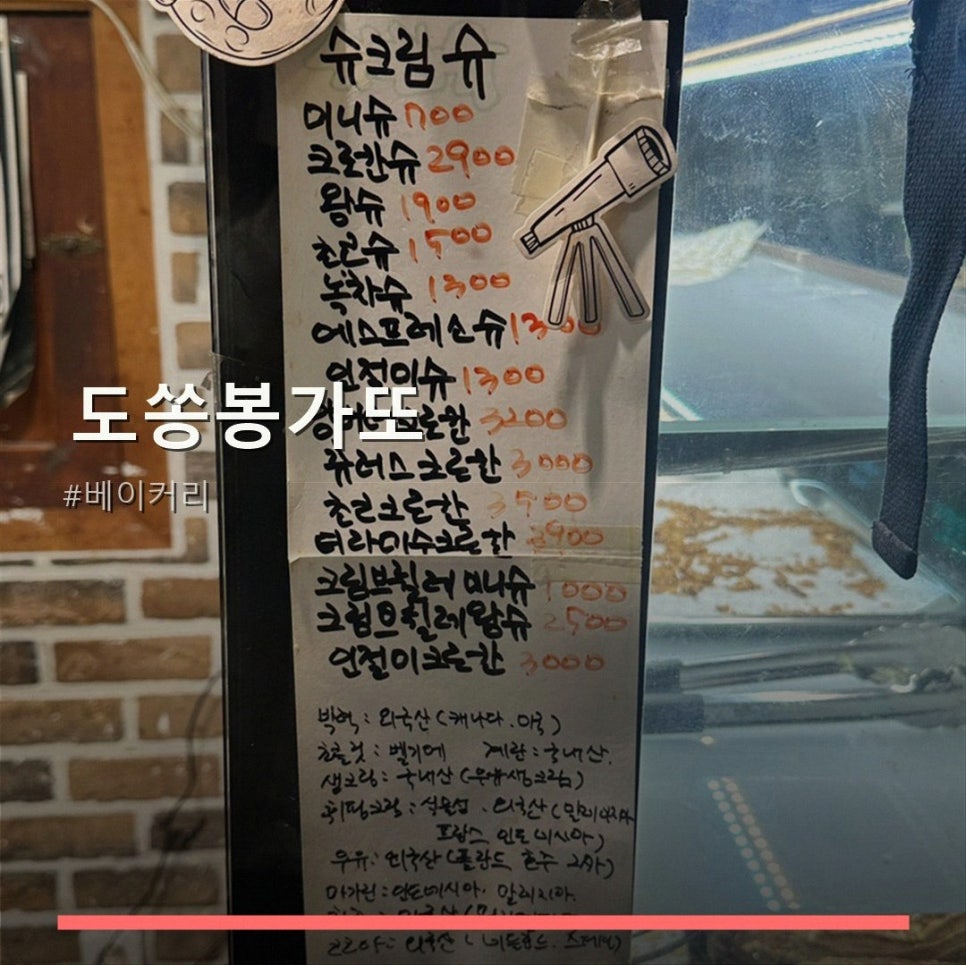 슈크림 슈
미니슈 700
크로칸슈 2900
왕슈 1900
초코슈 1500
녹차슈 1300
에스프레소슈 1300
인절미슈 1300
3200
도쏭봉가또
츄러스크로칸 3000
#베이커리
초코크로칸 3500
티라미수크로칸 2900
크림브륄레 미니슈 1000
크림브륄레왕슈 2500
인절미크로칸 3000
박력 : 외국산 (캐나다. 미국)
초콜릿 : 벨기에 계란 : 국내산.
생크림 : 국내산 (우유생크림)
휘핑크림 : 식물성. 외국산 (말레이시아
프랑스 인도네시아)
우유 : 외국산 (폴란드 호주
마가린 : 인도네시아. 말레이시아.
코코아 : 외국산 ( 네덜란드. 스페인)